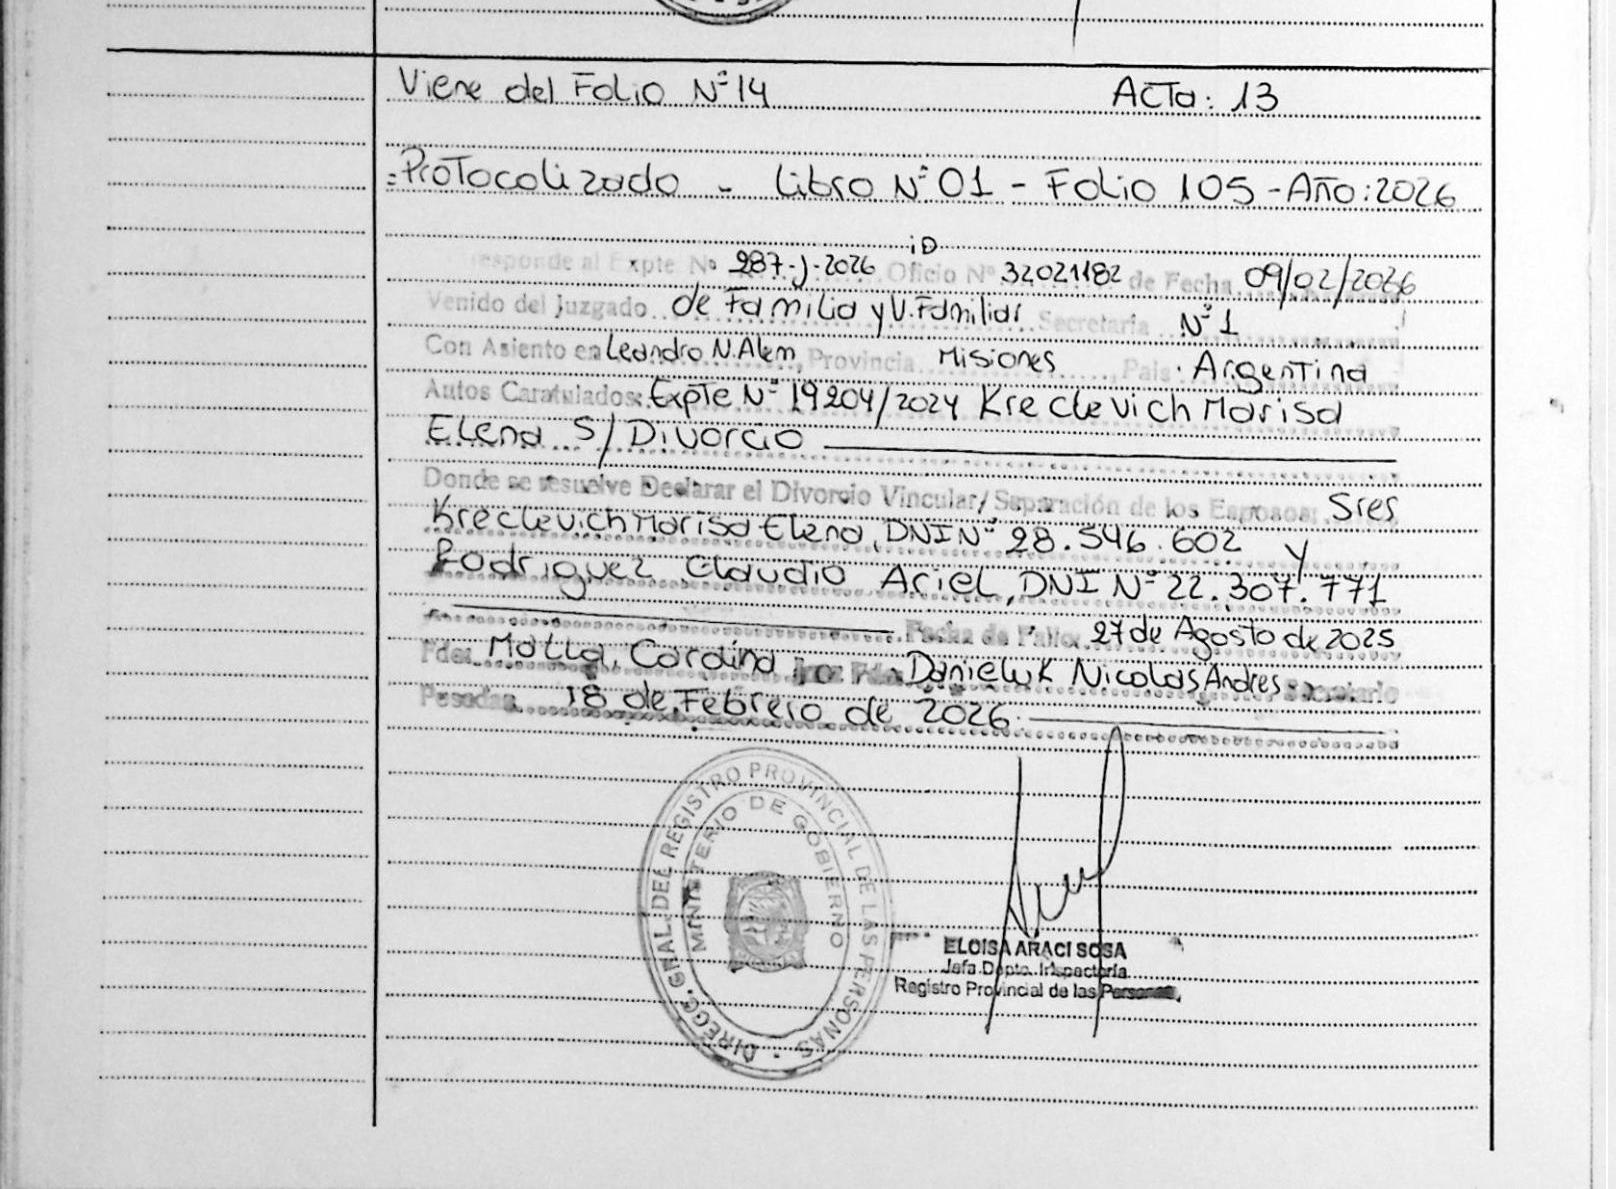 Viene del Folio Nº 14 Acta: 13
Protocolizado - Libro Nº 01 - Folio 105 - Año: 2026
iD
esponde al Expte Nº 287-J-2026 Oficio Nº 32021182 de Fecha 09/02/2026
Venido del Juzgado de Familia y V. Familiar Secretaria Nº 1
Con Asiento en Leandro N. Alem, Provincia Misiones, Pais Argentina
Autos Caratulados: Expte Nº 19204/2024 Kreclevich Marisa
Elena S/ Divorcio
Donde se resuelve Declarar el Divorcio Vincular/ Separación de los Esposos: Sres
Kreclevich Marisa Elena, DNI Nº 28.546.602 y
Rodriguez Claudio Ariel, DNI Nº 22.307.771
Fecha de Fallo: 27 de Agosto de 2025
Fdo: Carolina Daniewk Nicolas Andres Secretario
Posadas, 18 de Febrero de 2026
DIRECC. GRAL. DEL REGISTRO PROVINCIAL DE LAS PERSONAS
MINISTERIO DE GOBIERNO
ELOISA ARACI SOSA
Jefa Dpto. Inspectoría
Registro Provincial de las Personas